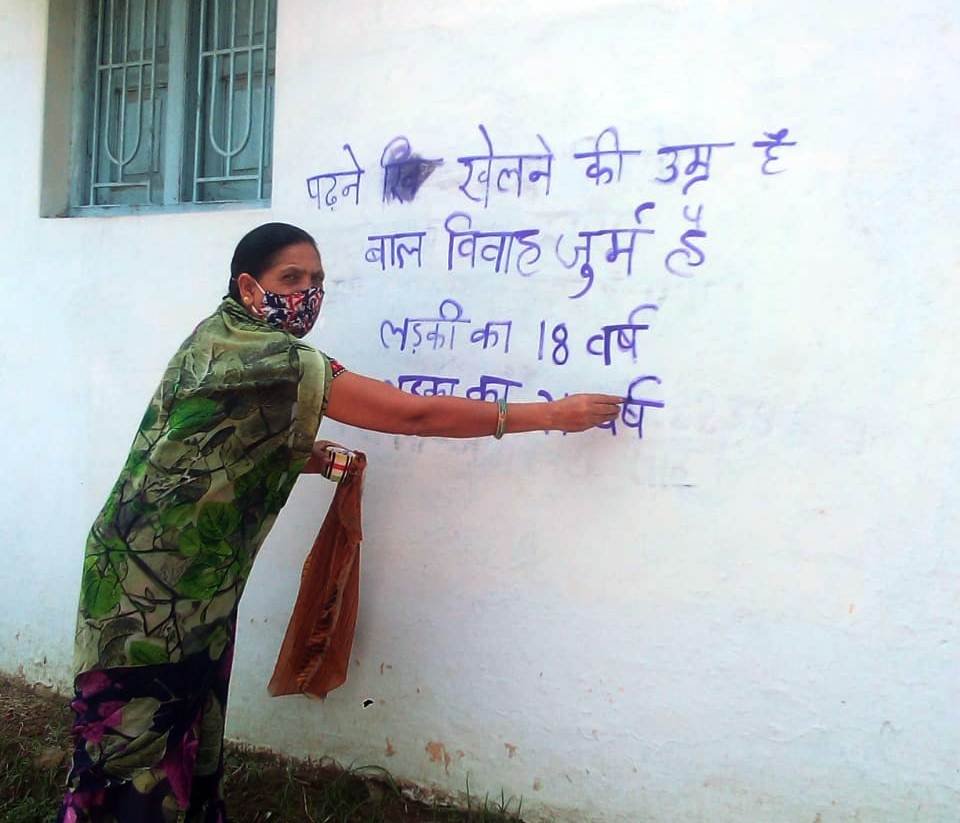 पढ़ने खेलने की उम्र है
बाल विवाह जुर्म है
लड़की का 18 वर्ष
का वर्ष